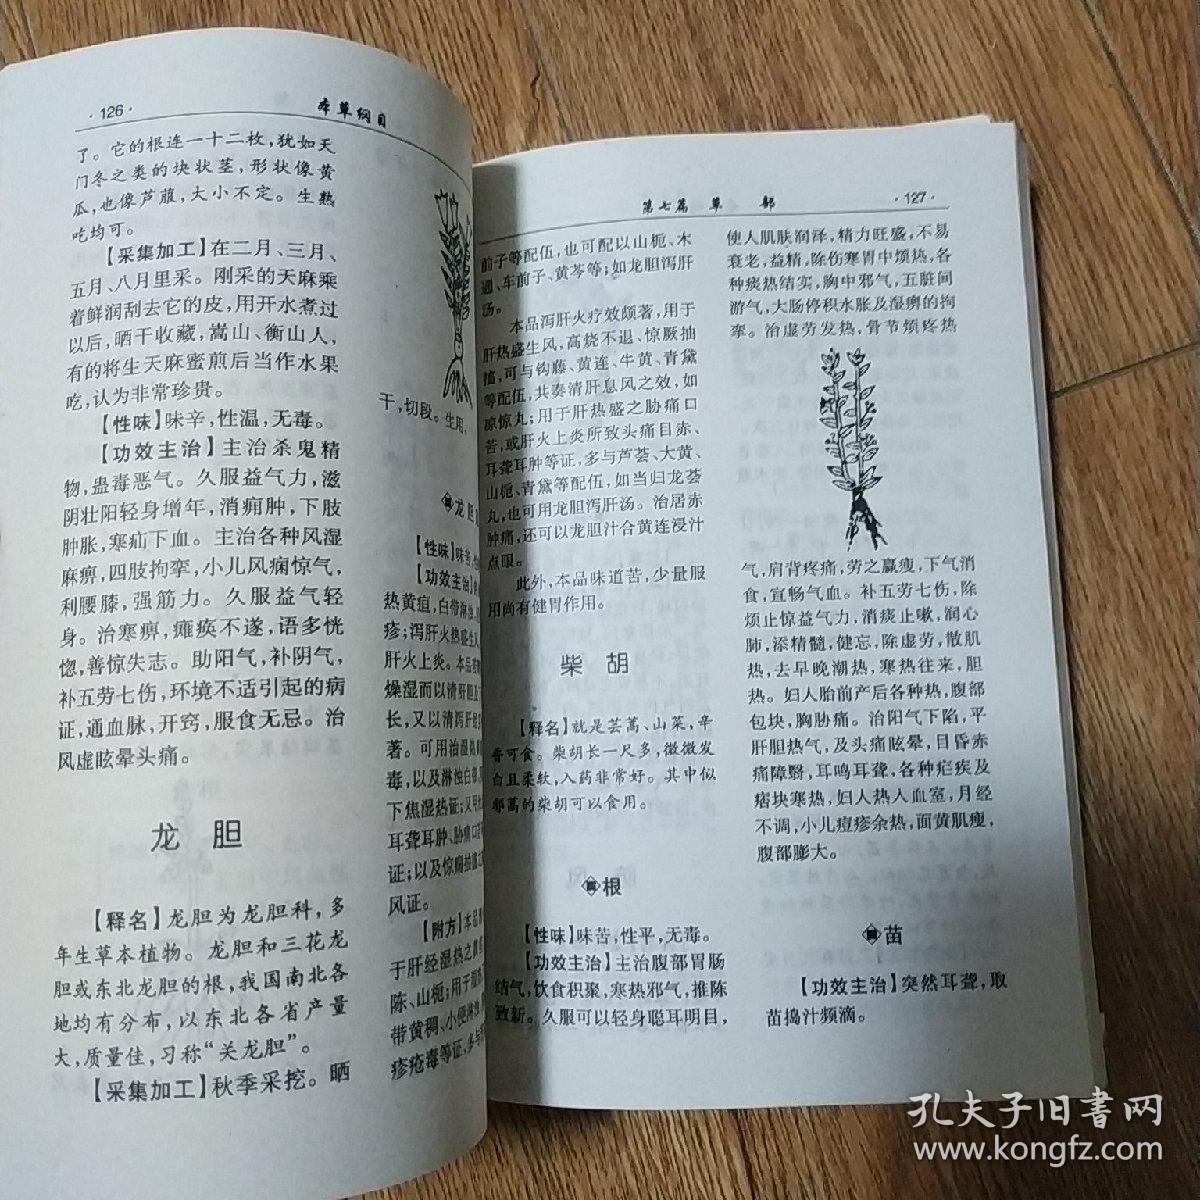 ·126·
本草纲目
了。它的根连一十二枚,犹如天
门冬之类的块状茎,形状像黄
瓜,也像芦菔,大小不定。生熟
吃均可。
【采集加工】在二月、三月、
五月、八月里采。刚采的天麻乘
着鲜润刮去它的皮,用开水煮过
以后,晒干收藏,嵩山、衡山人,
有的将生天麻蜜煎后当作水果
吃,认为非常珍贵。
【性味】味辛,性温,无毒。
【功效主治】主治杀鬼精
物,蛊毒恶气。久服益气力,滋
阴壮阳轻身增年,消痈肿,下肢
肿胀,寒疝下血。主治各种风湿
麻痹,四肢拘挛,小儿风痫惊气,
利腰膝,强筋力。久服益气轻
身。治寒痹,瘫痪不遂,语多恍
惚,善惊失志。助阳气,补阴气,
补五劳七伤,环境不适引起的病
证,通血脉,开窍,服食无忌。治
风虚眩晕头痛。
龙胆
【释名】龙胆为龙胆科,多
年生草本植物。龙胆和三花龙
胆或东北龙胆的根,我国南北各
地均有分布,以东北各省产量
大,质量佳,习称“关龙胆”。
【采集加工】秋季采挖。晒
干,切段。生用,
龙胆
【性味】味苦
【功效主治】
热黄疸,白带
疹;泻肝火热盛
肝火上炎。本品
燥湿而以清肝胆
长,又以清泻肝
著。可用治湿
毒,以及淋浊白
下焦湿热证;又
耳聋耳肿、胁痛口
证;以及惊痫抽搐
风证。
【附方】本品
于肝经湿热之
陈、山栀;用于
带黄稠、小便淋
疹疮毒等证,多与
第七篇 草 部
·127·
前子等配伍,也可配以山栀、木
通、车前子、黄芩等;如龙胆泻肝
汤。
本品泻肝火疗效颇著,用于
肝热盛生风,高烧不退、惊厥抽
搐,可与钩藤、黄连、牛黄、青黛
等配伍,共奏清肝息风之效,如
凉惊丸;用于肝热盛之胁痛口
苦,或肝火上炎所致头痛目赤、
耳聋耳肿等证,多与芦荟、大黄、
山栀、青黛等配伍,如当归龙荟
丸,也可用龙胆泻肝汤。治居赤
肿痛,还可以龙胆汁合黄连浸汁
点眼。
此外,本品味道苦,少量服
用尚有健胃作用。
柴胡
【释名】就是芸蒿、山菜,辛
香可食。柴胡长一尺多,微微发
白且柔软,入药非常好。其中似
邪蒿的柴胡可以食用。
根
【性味】味苦,性平,无毒。
【功效主治】主治腹部胃肠
结气,饮食积聚,寒热邪气,推陈
致新。久服可以轻身聪耳明目,
使人肌肤润泽,精力旺盛,不易
衰老,益精,除伤寒胃中烦热,各
种痰热结实,胸中邪气,五脏间
游气,大肠停积水胀及湿痹的拘
挛。治虚劳发热,骨节烦疼热
气,肩背疼痛,劳乏羸瘦,下气消
食,宣畅气血。补五劳七伤,除
烦止惊益气力,消痰止嗽,润心
肺,添精髓,健忘,除虚劳,散肌
热,去早晚潮热,寒热往来,胆
热。妇人胎前产后各种热,腹部
包块,胸胁痛。治阳气下陷,平
肝胆热气,及头痛眩晕,目昏赤
痛障翳,耳鸣耳聋,各种疟疾及
痞块寒热,妇人热入血室,月经
不调,小儿痘疹余热,面黄肌瘦,
腹部膨大。
苗
【功效主治】突然耳聋,取
苗捣汁频滴。
孔夫子旧书网
www.kongfz.com